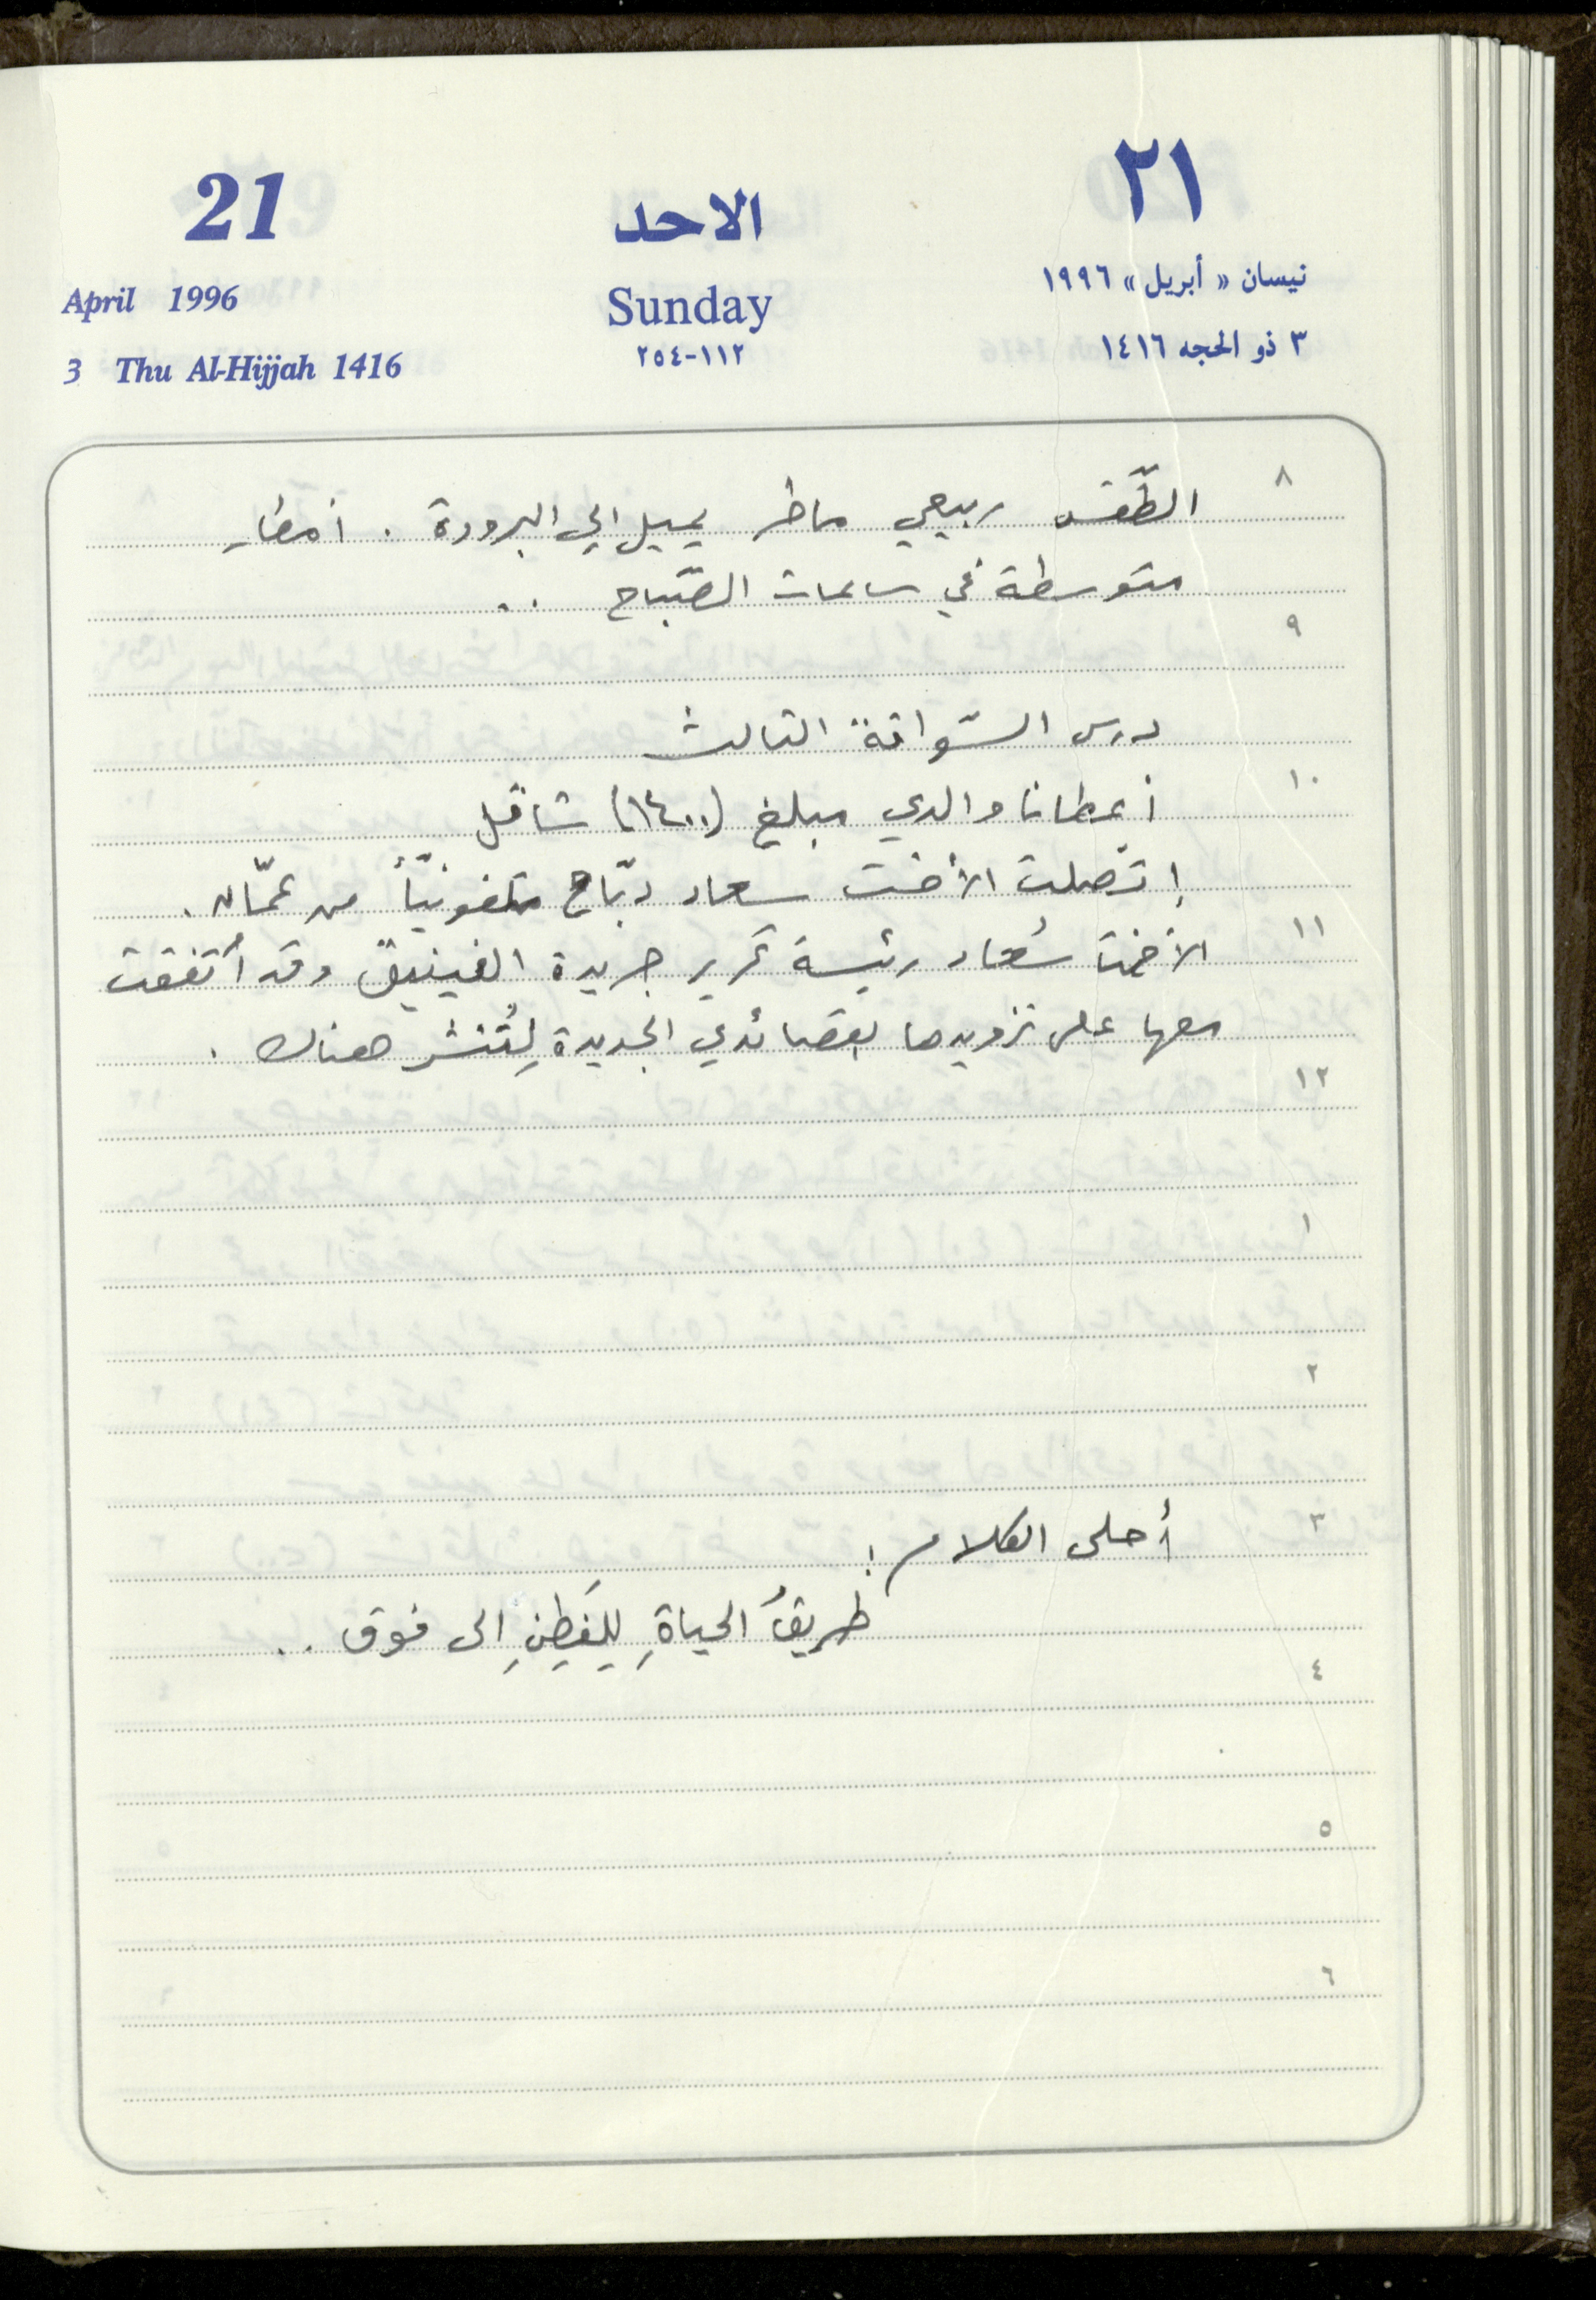 21
الاحد
٢١
April 1996
Sunday
نيسان « أبريل » ١٩٩٦
3 Thu Al-Hijjah 1416
١١٢-٢٥٤
٣ ذو الحجه ١٤١٦
٨
الطّقس ربيعي ماطر يميل إلى البرودة . أمطار
متوسطة في ساعات الصّباح ..
٩
درس السّواقة الثالث
١٠
أعطانا والدي مبلغ (١٤٠٠) شاقل
إتصلت الأخت سعاد دبّاح تلفونيّاً من عمّان .
١١
الأخت سُعاد رئيسة تحرير جريدة الفينيق وقد أتفقت
معها على تزويدها بقصائدي الجديدة لِتُنشر هناك .
١٢
١
٢
٣
أحلى الكلام :
طريقُ الحياةِ لِلفَطِنِ إلى فوق ..
٤
٥
٦